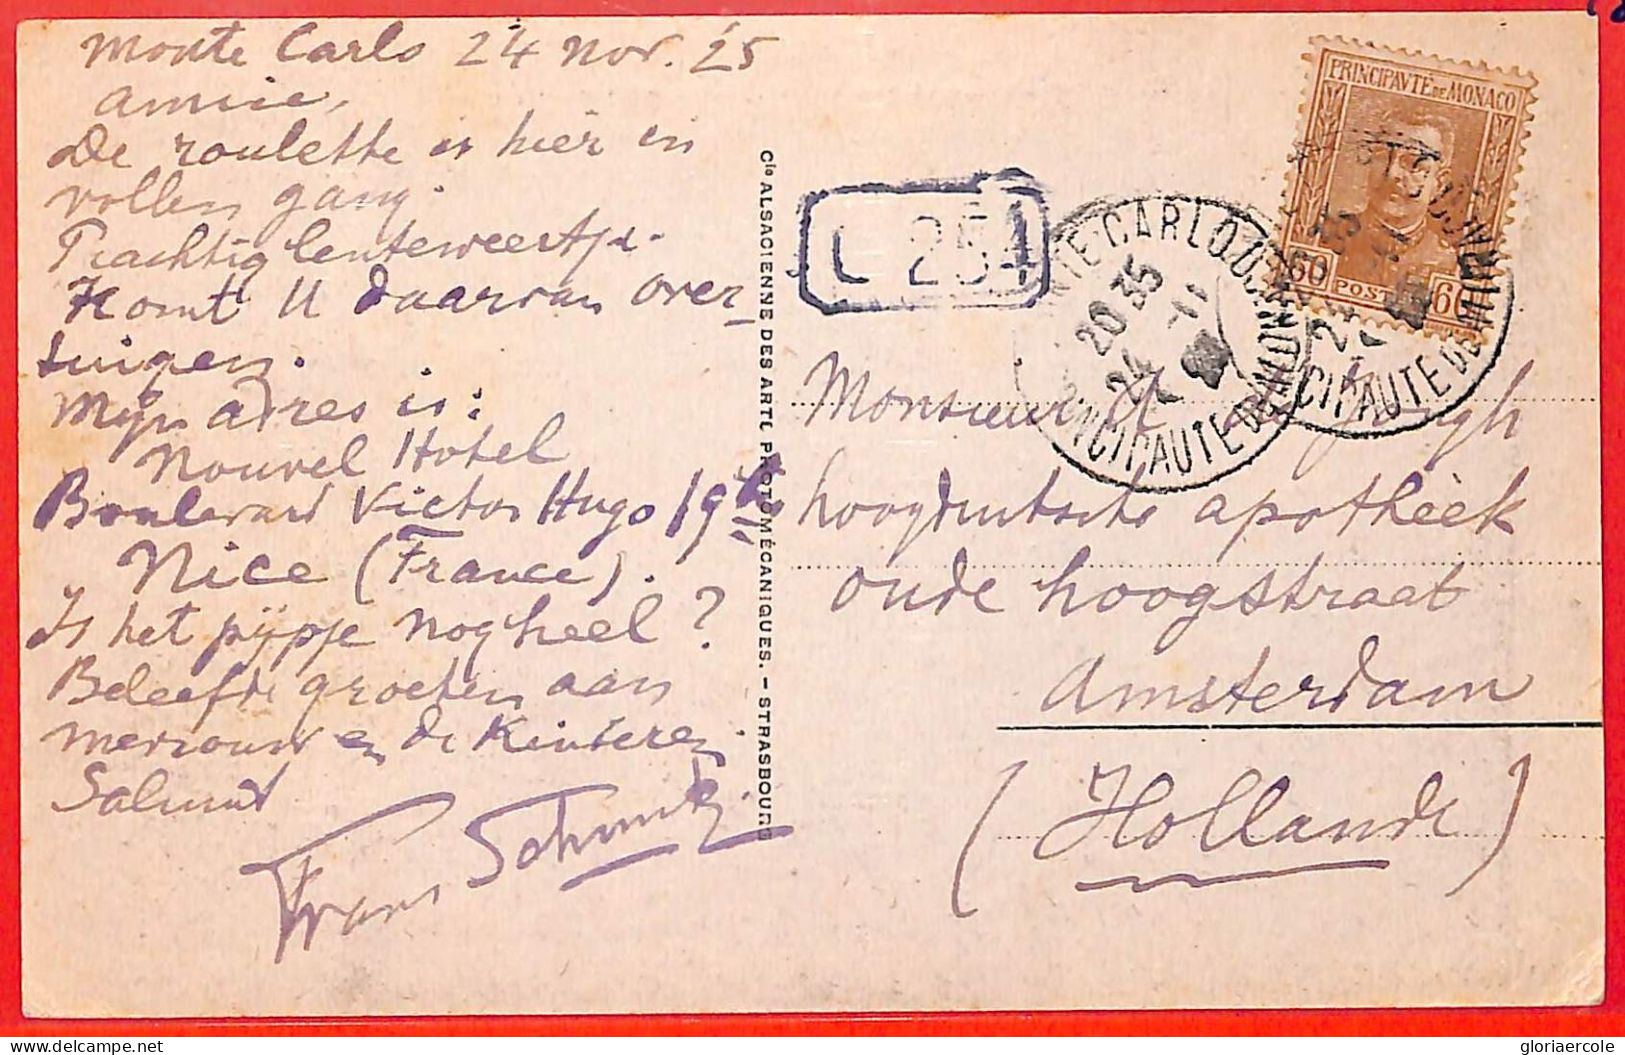 Monte Carlo 24 Nov. 25
Amice,
De roulette is hier in
vollen gang.
Prachtig lenteweertje.
Komt U daarvan over
tuigen.
Mijn adres is:
Nouvel Hotel
Boulevard Victor Hugo 19
Nice (France).
Is het pijpje nog heel?
Beleefde groeten aan
mevrouw en de kinderen
Saluut
Frans
Cie ALSACIENNE DES ARTS PHOTOMÉCANIQUES. - STRASBOURG
L 254
MONTE-CARLO
20 35
24 -11
PRINCIPAUTE DE
PRINCIPAVTÉ DE MONACO
60 POSTES 60
CIPAUTE DE
Monsieur de Jongh
hoogduitsche apotheek
oude hoogstraat
Amsterdam
(Hollande)
gloriaercole